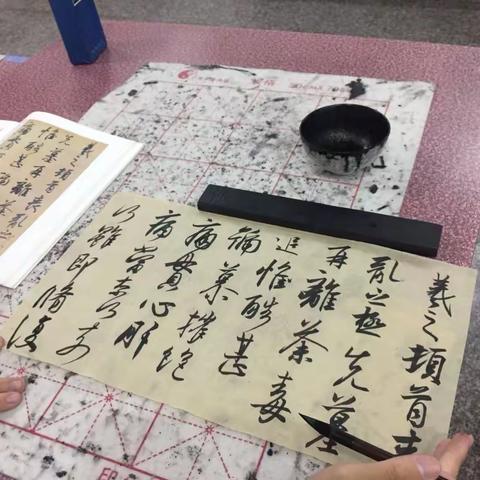 羲之頓首喪
亂之極先墓
再離荼毒
追惟酷甚
號慕摧絕
痛貫心肝
痛當奈何奈
何雖即脩復